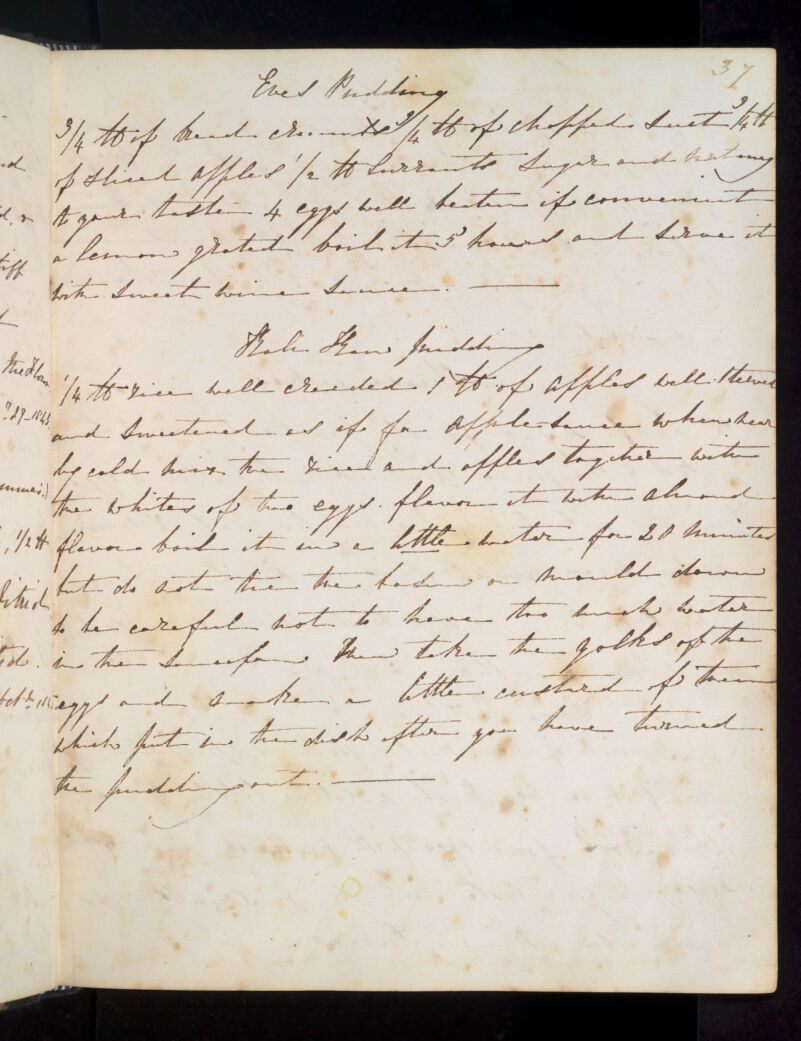 37
Eves Pudding
3/4 lb of bread crumbs 3/4 lb of chopped suet 3/4 lb
of sliced apples 1/2 lb Currants Sugar and nutmeg
to your taste 4 eggs well beaten if convenient
a lemon grated boil it 5 hours and serve it
with sweet wine sauce.
pudding
1/4 lb rice well creeded 1 lb of apples well stewed
and sweetened as if for apple-sauce when near
ly cold mix the rice and apples together with
the whites of two eggs. flavor it with almond
flavor boil it in a little water for 20 minutes
but do not tie the basin or mould down
to be careful not to have too much water
in the saucepan then take the yolks of the
eggs and make a little custard of them
which put in the dish after you have turned
the pudding out.
the flour
1/2 lb